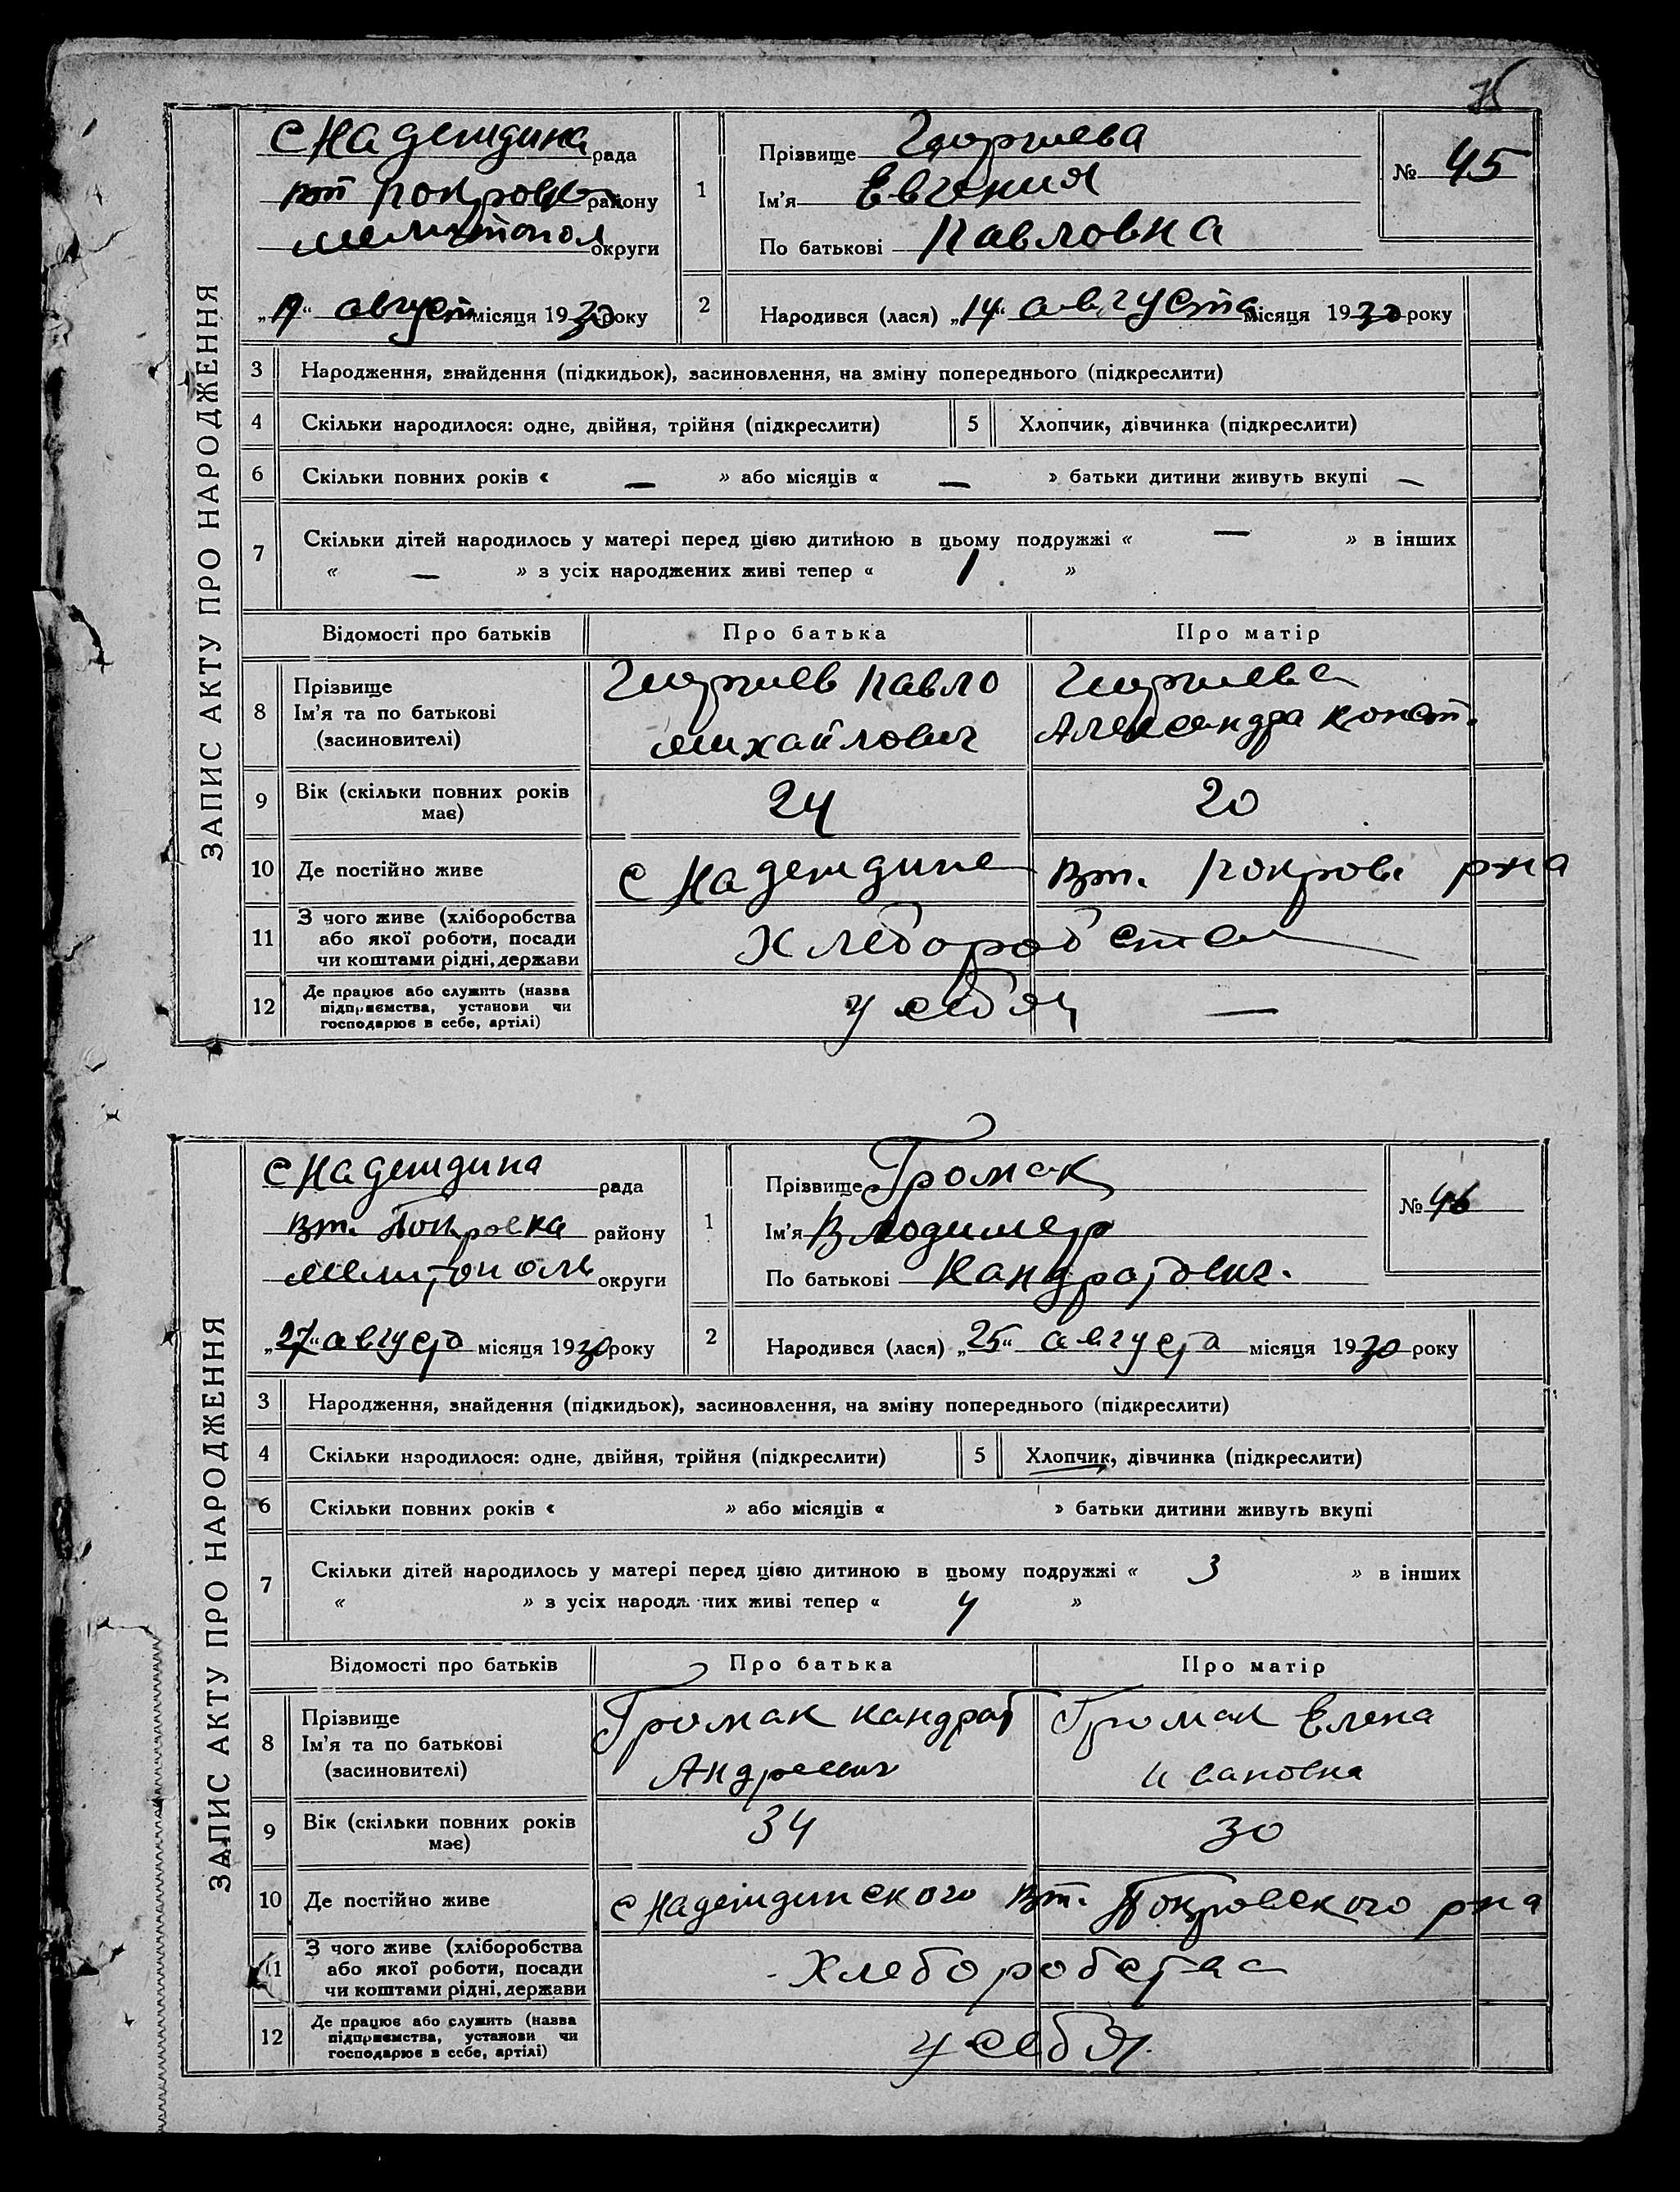 75
ЗАПИС АКТУ ПРО НАРОДЖЕННЯ
С Надеждина рада
вт Покровка району
Мелитопол округи
август місяця 1930 року
1
Прізвище Гюргиева
Ім'я Евгения
По батькові Павловна
№ 45
2
Народився (лася) „14“ августа місяця 1930 року
3 Народження, знайдення (підкидьок), засиновлення, на зміну попереднього (підкреслити)
4 Скільки народилося: одне, двійня, трійня (підкреслити) 5 Хлопчик, дівчинка (підкреслити)
6 Скільки повних років « — » або місяців « — » батьки дитини живуть вкупі —
7 Скільки дітей народилось у матері перед цією дитиною в цьому подружжі « — » в інших
« — » з усіх народжених живі тепер « 1 »
Відомості про батьків Про батька Про матір
8 Прізвище
Ім'я та по батькові
(засиновителі)
Гюргиев Павло
Михайлович
Гюргиева
Александра Конст.
9 Вік (скільки повних років
має)
24 20
10 Де постійно живе С Надеждине Вт. Покров. р-на
11 З чого живе (хліборобства
або якої роботи, посади
чи коштами рідні, держави
Хлеборобства
12 Де працює або служить (назва
підприємства, установи чи
господарює в себе, артілі)
у себя —
ЗАПИС АКТУ ПРО НАРОДЖЕННЯ
С Надеждина рада
Вт. Покровка району
Мелитополь округи
„27“ августа місяця 1930 року
1
Прізвище Громак
Ім'я Влодимер
По батькові Кандратович.
№ 46
2
Народився (лася) „25“ августа місяця 1930 року
3 Народження, знайдення (підкидьок), засиновлення, на зміну попереднього (підкреслити)
4 Скільки народилося: одне, двійня, трійня (підкреслити) 5 Хлопчик, дівчинка (підкреслити)
6 Скільки повних років « » або місяців « » батьки дитини живуть вкупі
7 Скільки дітей народилось у матері перед цією дитиною в цьому подружжі « 3 » в інших
« » з усіх народжених живі тепер « 4 »
Відомості про батьків Про батька Про матір
8 Прізвище
Ім'я та по батькові
(засиновителі)
Громак Кандрат
Андреевич
Громак Елена
Ивановна
9 Вік (скільки повних років
має)
34 30
10 Де постійно живе С Надеждинского Вт. Покровского р-на
11 З чого живе (хліборобства
або якої роботи, посади
чи коштами рідні, держави
Хлеборобства
12 Де працює або служить (назва
підприємства, установи чи
господарює в себе, артілі)
у себя.